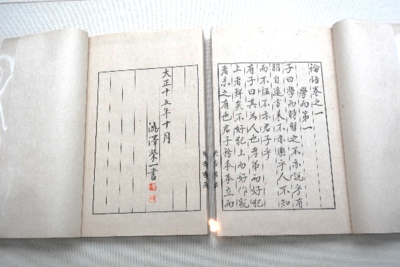 論語巻之一
學而第一
子曰學而時習之不亦説乎有
朋自遠方來不亦樂乎人不知
而不慍不亦君子乎
有子曰其爲人也孝弟而好犯
上者鮮矣不好犯上而好作亂
者未之有也君子務本本立而
大正十五年十月
澁澤榮一書